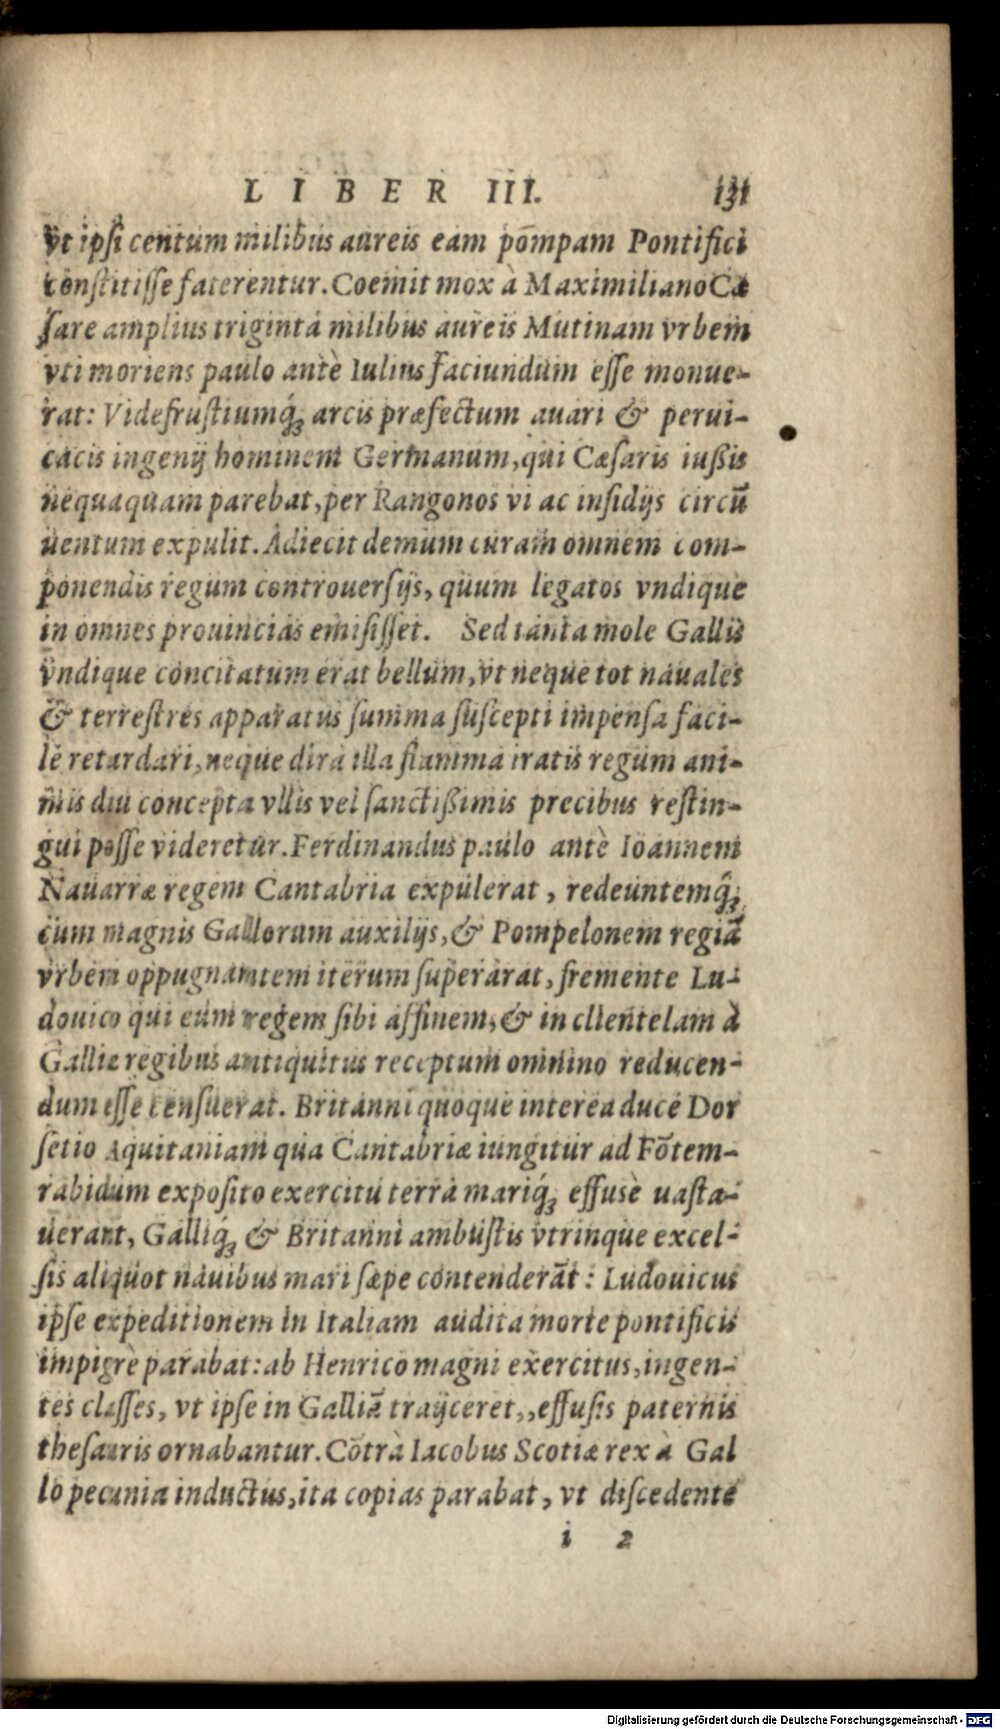 LIBER III. 131
vt ipsi centum milibus aureis eam põmpam Pontifici
constitisse faterentur. Coemit mox à Maximiliano Cæ
sare amplius triginta milibus aureis Mutinam vrbem
vti moriens paulo antè Iulius faciundum esse monue-
rat: Videfrustiumq́; arcis præfectum auari & perui-
cacis ingenij hominem Germanum, qui Cæsaris iußis
nequaquam parebat, per Rangonos vi ac insidijs circũ
uentum expulit. Adiecit demum curam omnem com-
ponendis regum controuersijs, quum legatos vndique
in omnes prouincias emisisset. Sed tanta mole Gallis
vndique concitatum erat bellum, vt neque tot nauales
& terrestres apparatus summa suscepti impensa faci-
lè retardari, neque dira illa flamma iratis regum ani-
mis diu concepta vllis vel sanctißimis precibus restin-
gui posse videretur. Ferdinandus paulo antè Ioannem
Nauarræ regem Cantabria expulerat, redeuntemq̃;
cum magnis Gallorum auxilijs, & Pompelonem regiã
vrbem oppugnantem iterum superarat, fremente Lu-
douico qui eum regem sibi affinem, & in clientelam à
Galliæ regibus antiquitus receptum omnino reducen-
dum esse censuerat. Britanni quoque interea duce Dor
setio Aquitaniam qua Cantabriæ iungitur ad Fõtem-
rabidum exposito exercitu terra mariq́; effusè uasta-
uerant, Galliq́; & Britanni ambustis vtrinque excel-
sis aliquot nauibus mari sæpe contenderãt: Ludouicus
ipse expeditionem in Italiam audita morte pontificis
impigrè parabat: ab Henrico magni exercitus, ingen-
tes classes, vt ipse in Galliã traijceret,, effusis paternis
thesauris ornabantur. Cõtrà Iacobus Scotiæ rex à Gal
lo pecunia inductus, ita copias parabat, vt discedente
i 2
Digitalisierung gefördert durch die Deutsche Forschungsgemeinschaft - DFG